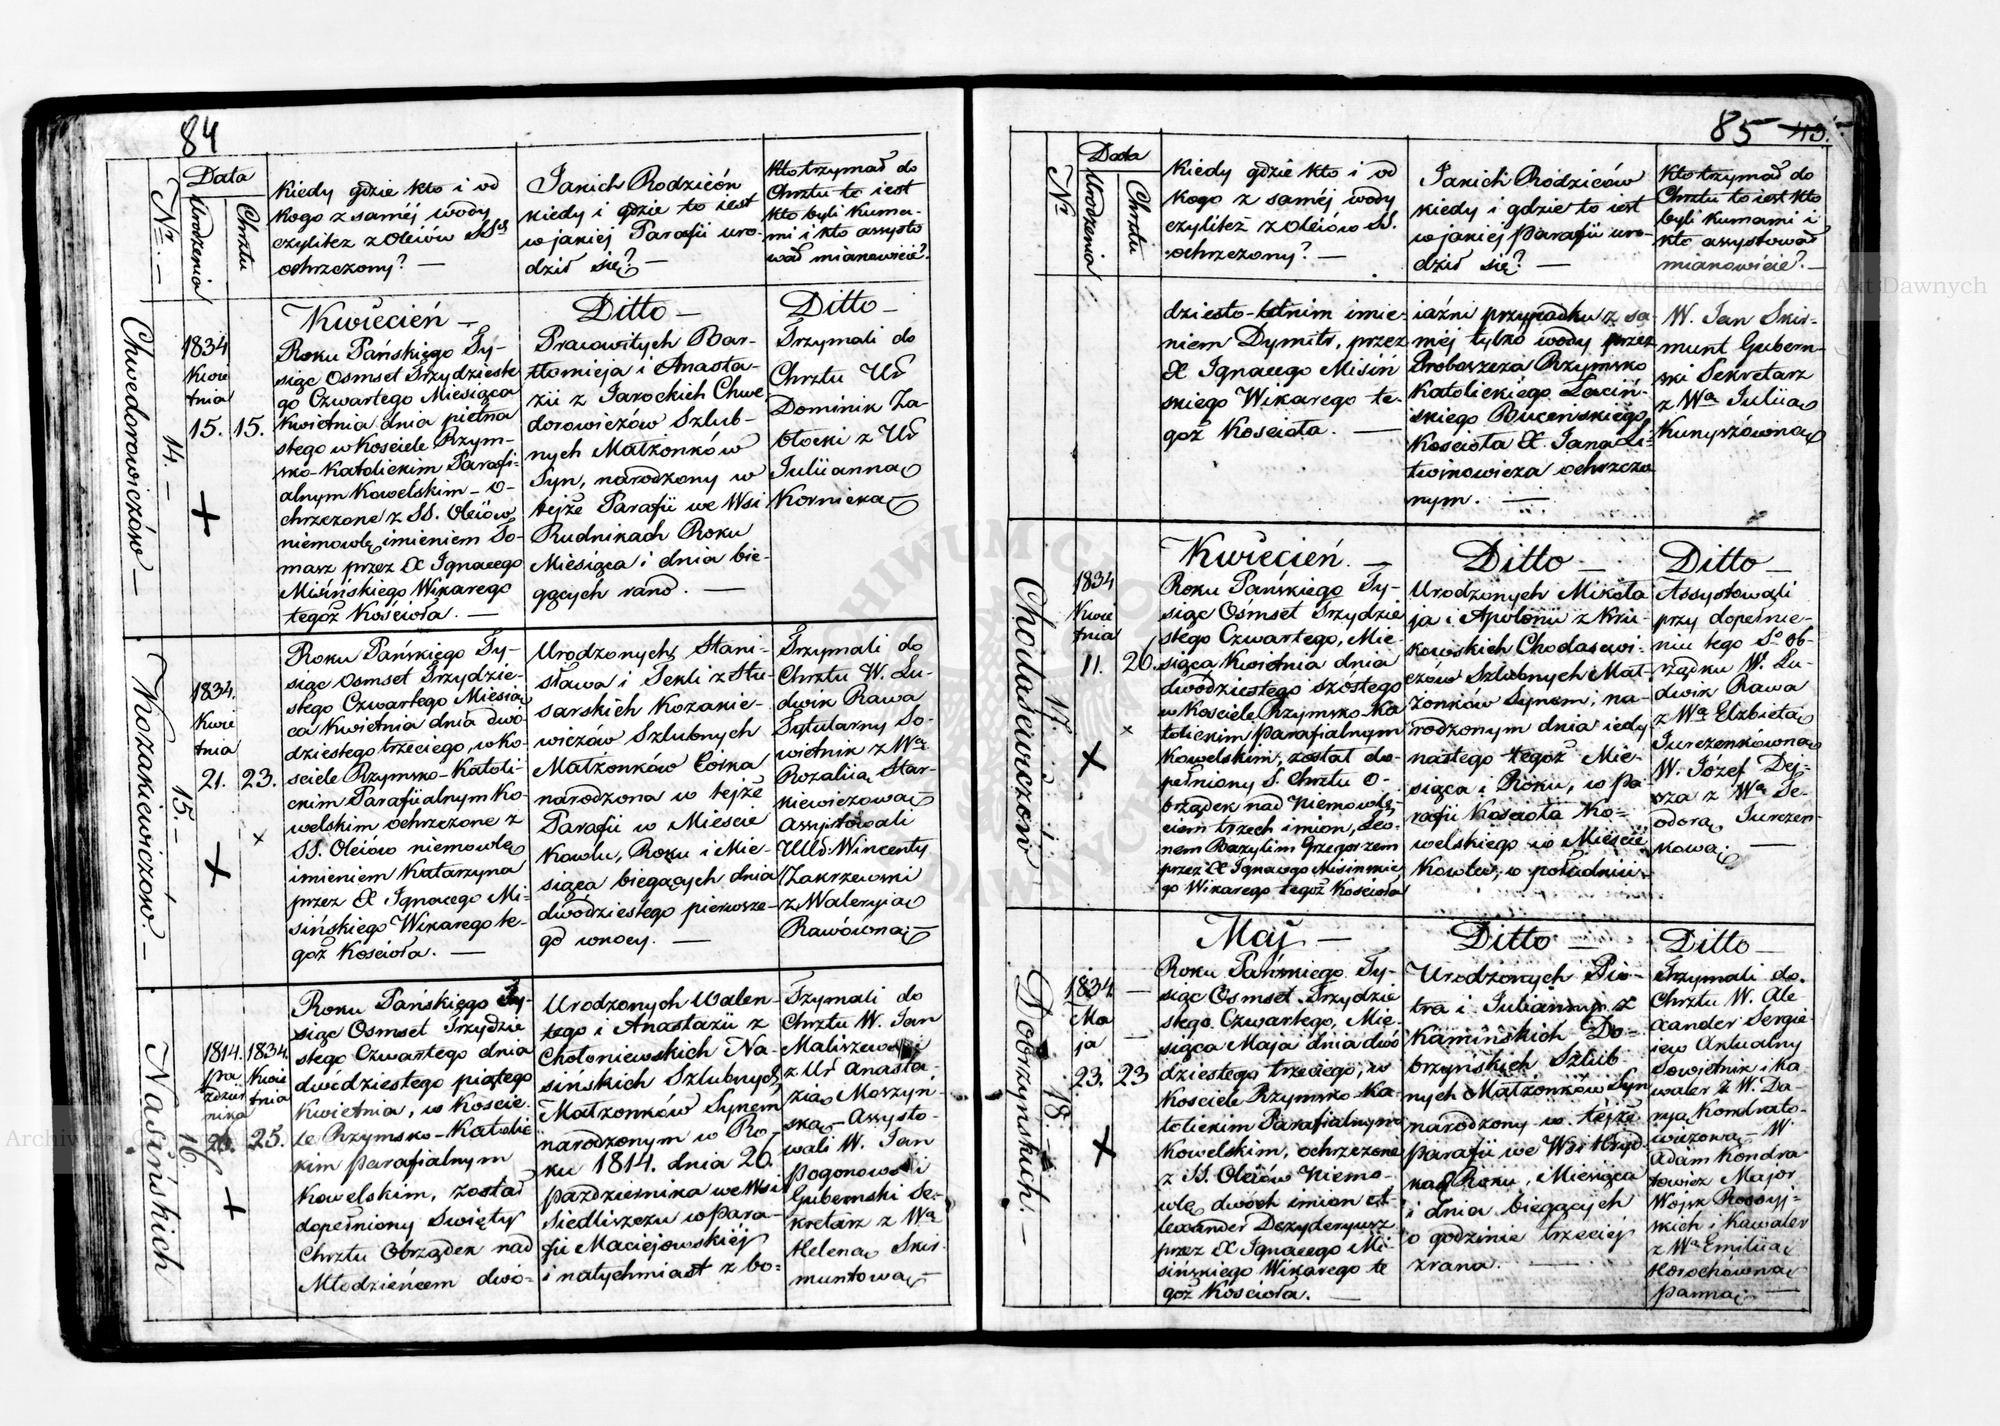 84
Nr. —
Data
Urodzenia
Chrztu
Kiedy gdzie kto i od
kogo z samej wody
czyliteż z Oleiów SSch
ochrzczony? —
Jakich Rodziców
kiedy i gdzie to iest
w jakiej Parafii uro-
dził się? —
Kto trzymał do
Chrztu to iest
kto byli Kuma-
mi i kto assysto
wał mianowicie?
Chwedorowiczów —
14. —
1834
Kwie
tnia
15. 15.
Kwiecień —
Roku Pańskiego Ty-
siąc Osmset Trzydzieste
go Czwartego Miesiąca
Kwietnia dnia piętna
stego w Kosciele Rzym-
sko-Katolickim Parafi-
alnym Kowelskim - o-
chrzczone z SS. Oleiów
niemowlę imieniem To-
masz przez X Ignacego
Misińskiego Wikarego
tegoż Kościoła. —
Ditto —
Pracowitych Bar-
tłomieja i Anasta-
zii z Jarockich Chwe
dorowiczów Szlub-
nych Małżonków
Syn, narodzony w
tejże Parafii we Wsi
Rudnikach Roku
Miesiąca i dnia bie-
gących rano. —
Ditto —
Trzymali do
Chrztu Ur
Dominik Za-
błocki z Ur
Juliianną
Kornicką
Kozakiewiczów. —
15. —
1834.
Kwie
tnia
21. 23.
Roku Pańskiego Ty-
siąc Osmset Trzydzie-
stego Czwartego Miesią
ca Kwietnia dnia dwo
dziestego trzeciego, w Ko-
sciele Rzymsko-Katoli-
ckim Parafiialnym Ko-
welskim ochrzczone z
SS. Oleiów niemowlę
imieniem Katarzyna
przez X Ignacego Mi-
sińskiego Wikarego te-
goż Kościoła. —
Urodzonych Stani-
sława i Tekli z Stu-
sarskich Kozakie-
wiczów Szlubnych
Małżonków Córka
narodzona w tejże
Parafii w Mieście
Kowlu, Roku i Mie-
siąca biegących dnia
dwódziestego pierwsze-
go w nocy. —
Trzymali do
Chrztu W. Lu-
dwik Rawa
Tytularny So-
wietnik z Wą
Rozaliią Star-
kiewiczową —
Assystowali
UUr. Wincenty
Zakrzewski
z Waleryią
Rawówną —
Nasińskich
16
1814. 1834.
Pa Kwie
ździer tnia
nika
26. 25.
Roku Pańskiego Ty-
siąc Osmset Trzydzie
stego Czwartego dnia
dwódziestego piątego
Kwietnia, w Koście-
le Rzymsko-Katolic
kim parafialnym
Kowelskim, został
dopełniony Swięty
Chrztu Obrządek nad
Młodzieńcem dwó-
Urodzonych Walen-
tego i Anastazii z
Chołoniewskich Na-
sińskich Szlubnych
Małżonków Synem
narodzonym w Ro-
ku 1814. dnia 26.
października we Wsi
Siedliszczu w para-
fii Maciejowskiéj
i natychmiast z bo-
Trzymali do
Chrztu W. Jan
Maliszewski
z Ur Anasta-
zią Morzyń-
ską — Assysto-
wali W. Jan
Pogonowski
Gubernski Se-
kretarz z Wą
Heleną Skir-
muntową —
85 43.
Nr
Data
Urodzenia
Chrztu
Kiedy gdzie kto i od
kogo z saméj wody
czyliteż z Oleiów SS.
ochrzczony? —
Jakich Rodziców
kiedy i gdzie to iest
w jakiej parafii uro-
dził się? —
Kto trzymał do
Chrztu to iest kto
byli kumami i
kto assystował
mianowicie? —
dziesto-letnim imie-
niem Dymitr, przez
X Ignacego Misiń
skiego Wikarego te-
goż Kosciota. —
iaźni przypadku z sa-
méj tylko wody przez
Proboszcza Rzymsko
Katolickiego Laciń-
skiego Buceńskiego
Kościoła X Jana Li-
twinowicza ochrzczo
nym. —
W. Jan Skir-
munt Gubern-
ski Sekretarz
z Wą Juliią
Kunyszówną
Chodasiewiczów
17.
1834
Kwie
tnia
11. 26.
Kwiecień. —
Roku Pańskiego Ty-
siąc Osmset Trzydzie
stego Czwartego, Mie-
siąca Kwietnia dnia
dwódziestego szóstego
w Kosciele Rzymsko-Ka
tolickim parafialnym
Kowelskim, został do-
pełniony S. Chrztu O-
brządek nad Niemowlę-
ciem trzech imion, Leo-
nem Bazylim Grzegorzem
przez X Ignacego Misińskie
go Wikarego tegoż Kościoła
Ditto —
Urodzonych Mikoła
ja i Apolonii z Kru-
kowskich Chodasewi-
czów Szlubnych Mał-
żonków Synem, na-
rodzonym dnia iedy
nastego tegoż Mie-
siąca i Roku, w pa
rafii Kościoła Ko-
welskiego w Mieście
Kowlu, w południu
Ditto —
Assystowali
przy dopełnie-
niu tego So ob-
rządku W. Lu-
dwik Rawa
z Wą Elżbietą
Jurczenkówną
W. Józef Dej-
sza z Wą Te-
odorą Jurczen-
kową. —
Dobrzyńskich. —
18. —
1834
Ma
ja
23. 23
Maj —
Roku Pańskiego Ty-
siąc Osmset Trzydzie
stego Czwartego, Mie-
siąca Maja dnia dwó
dziestego trzeciego, w
Kosciele Rzymsko-Ka-
tolickim Parafialnym
Kowelskim, ochrzczone
z SS. Oleiów Niemo-
wlę dwóch imion A-
lexander Dezyderyusz
przez X Ignacego Mi-
sińskiego Wikarego te
goż Kościoła. —
Ditto —
Urodzonych Pio-
tra i Julianny z
Kamińskich Do-
brzyńskich Szlub
nych Małżonków Syn
narodzony w tejże
parafii we Wsi Hryd-
kach Roku, Miesiąca
i dnia biegących
o godzinie trzeciej
z rana. —
Ditto —
Trzymali do
Chrztu W. Ale-
xander Sergie-
iew Aktualny
Sowietnik i Ka-
waler z W. Da-
ryą Kondrato-
wiczową — W.
Adam Kondra-
towicz Major
Wojsk Rossyj-
skich i Kawaler
z Wą Emiliią
Horochówną
panną. —
Archiwum Główne Akt Dawnych